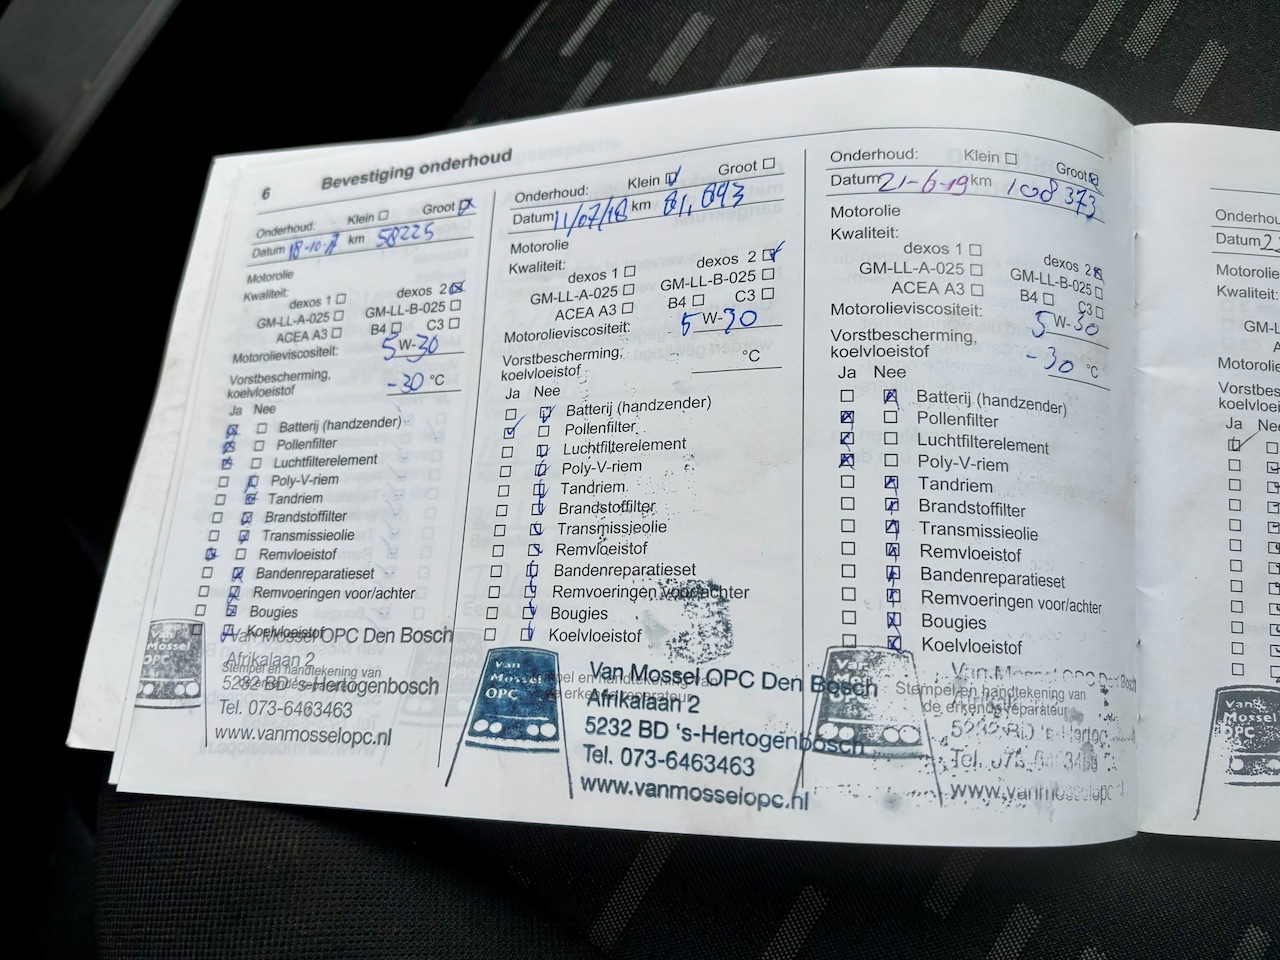 6 Bevestiging onderhoud
Onderhoud: Klein Groot
Datum 18-10- km 58225
Motorolie
Kwaliteit:
dexos 1 dexos 2
GM-LL-A-025 GM-LL-B-025
ACEA A3 B4 C3
Motorolieviscositeit: 5 W-30
Vorstbescherming,
koelvloeistof -30 °C
Ja Nee
Batterij (handzender)
Pollenfilter
Luchtfilterelement
Poly-V-riem
Tandriem
Brandstoffilter
Transmissieolie
Remvloeistof
Bandenreparatieset
Remvoeringen voor/achter
Bougies
Koelvloeistof
Stempel en handtekening van
de erkende reparateur
Van Mossel OPC
Van Mossel OPC Den Bosch
Afrikalaan 2
5232 BD 's-Hertogenbosch
Tel. 073-6463463
www.vanmosselopc.nl
Onderhoud: Klein Groot
Datum 11/07/18 km 81,093
Motorolie
Kwaliteit:
dexos 1 dexos 2
GM-LL-A-025 GM-LL-B-025
ACEA A3 B4 C3
Motorolieviscositeit: 5 W-30
Vorstbescherming,
koelvloeistof °C
Ja Nee
Batterij (handzender)
Pollenfilter
Luchtfilterelement
Poly-V-riem
Tandriem
Brandstoffilter
Transmissieolie
Remvloeistof
Bandenreparatieset
Remvoeringen voor/achter
Bougies
Koelvloeistof
Stempel en handtekening van
de erkende reparateur
Van
Mossel
OPC
Van Mossel OPC Den Bosch
Afrikalaan 2
5232 BD 's-Hertogenbosch
Tel. 073-6463463
www.vanmosselopc.nl
Onderhoud: Klein Groot
Datum 21-6-19 km 108373
Motorolie
Kwaliteit:
dexos 1 dexos 2
GM-LL-A-025 GM-LL-B-025
ACEA A3 B4 C3
Motorolieviscositeit: 5 W-30
Vorstbescherming,
koelvloeistof -30 °C
Ja Nee
Batterij (handzender)
Pollenfilter
Luchtfilterelement
Poly-V-riem
Tandriem
Brandstoffilter
Transmissieolie
Remvloeistof
Bandenreparatieset
Remvoeringen voor/achter
Bougies
Koelvloeistof
Stempel en handtekening van
de erkende reparateur
Van Mossel OPC Den Bosch
5232 BD 's-Hertog
Tel. 073-6463463
www.vanmosselopc
Onderhou
Datum 2
Motorolie
Kwaliteit:
GM-L
Motorolie
Vorstbes
koelvloei
Ja Nee
Van
Mossel
OPC